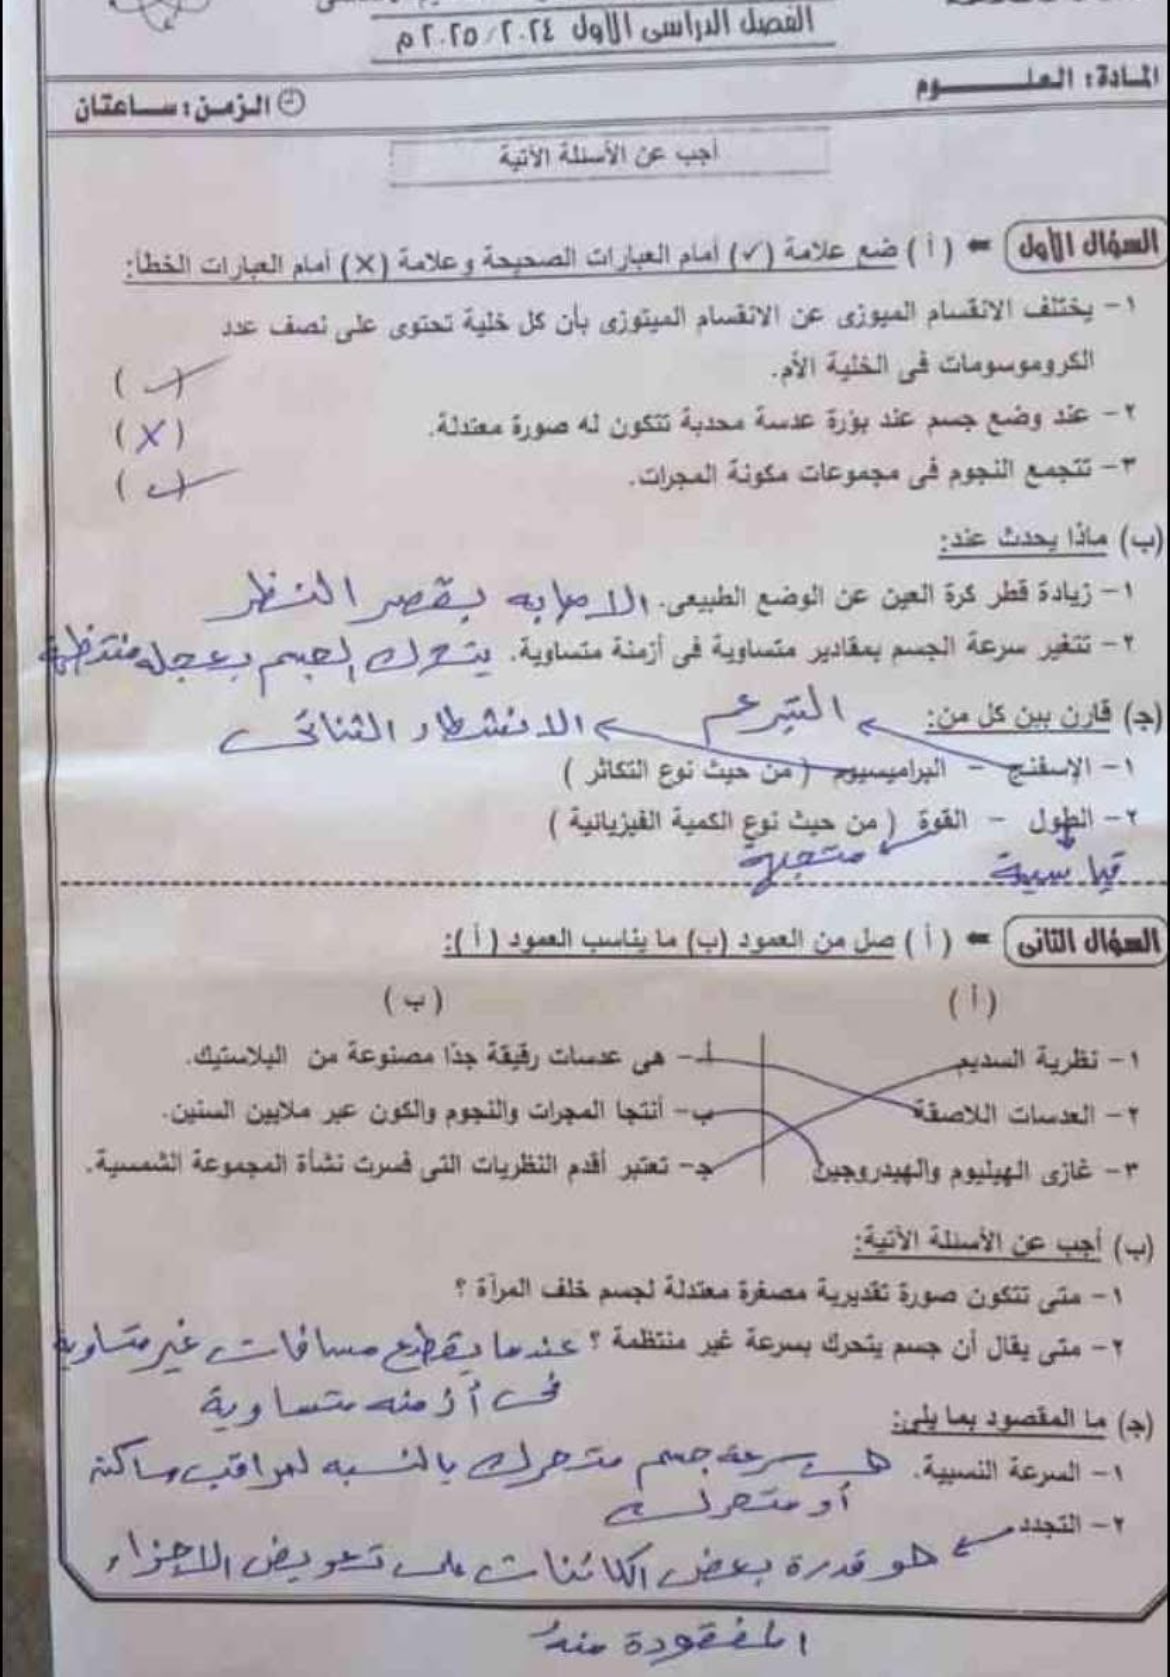 الفصل الدراسى الأول ٢٠٢٤/٢٠٢٥م
المادة: العلـــــوم
الزمن: ساعتان
أجب عن الأسئلة الأتية
السؤال الأول ( أ ) ضع علامة (✓) أمام العبارات الصحيحة وعلامة (X) أمام العبارات الخطأ:
١- يختلف الانقسام الميوزى عن الانقسام الميتوزى بأن كل خلية تحتوى على نصف عدد
الكروموسومات فى الخلية الأم. (✓)
٢- عند وضع جسم عند بؤرة عدسة محدبة تتكون له صورة معتدلة. (X)
٣- تتجمع النجوم فى مجموعات مكونة المجرات. (✓)
(ب) ماذا يحدث عند:
١- زيادة قطر كرة العين عن الوضع الطبيعى. الاصابه بقصر النظر
٢- تتغير سرعة الجسم بمقادير متساوية فى أزمنة متساوية. يتحرك الجسم بعجله منتظمة
(ج) قارن بين كل من: التبرعم الانشطار الثنائى
١- الإسفنج - البراميسيوم ( من حيث نوع التكاثر )
٢- الطول - القوة ( من حيث نوع الكمية الفيزيائية )
قياسية متجهة
السؤال الثانى ( أ ) صل من العمود (ب) ما يناسب العمود ( أ ):
( أ ) ( ب )
١- نظرية السديم أ- هى عدسات رقيقة جدًا مصنوعة من البلاستيك.
٢- العدسات اللاصقة ب- أنتجا المجرات والنجوم والكون عبر ملايين السنين.
٣- غازى الهيليوم والهيدروجين ج- تعتبر أقدم النظريات التى فسرت نشأة المجموعة الشمسية.
(ب) أجب عن الأسئلة الأتية:
١- متى تتكون صورة تقديرية مصغرة معتدلة لجسم خلف المرآة ؟
٢- متى يقال أن جسم يتحرك بسرعة غير منتظمة ؟ عندما يقطع مسافات غير متساوية
فى أزمنه متساوية
(ج) ما المقصود بما يلى:
١- السرعة النسبية. هى سرعة جسم متحرك بالنسبه لمراقب ساكن
أو متحرك
٢- التجدد هو قدرة بعض الكائنات على تعويض الاجزاء
المفقودة منه